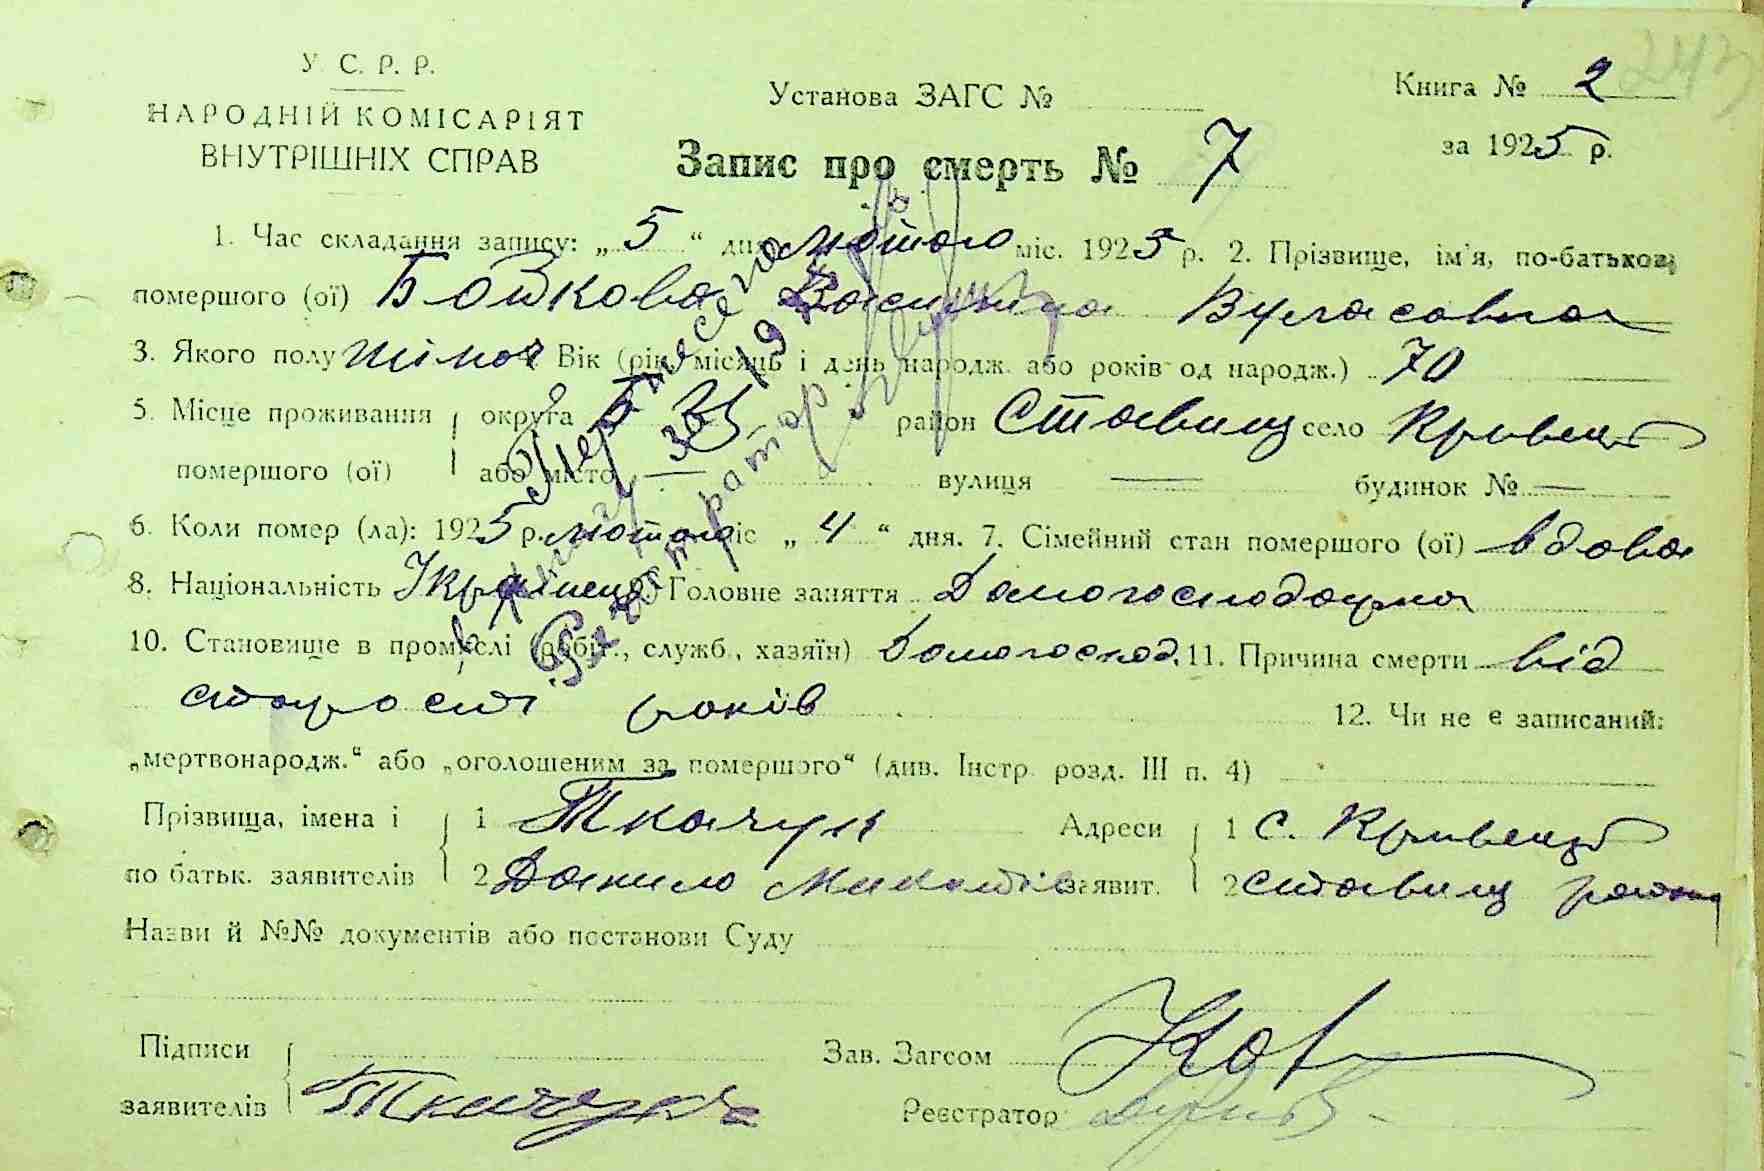 У. С. Р. Р.
НАРОДНІЙ КОМІСАРІЯТ
ВНУТРІШНІХ СПРАВ
Установа ЗАГС №
Книга № 2
за 1925 р.
Запис про смерть № 7
1. Час складання запису: „5“ дня лютого міс. 1925 р. 2. Прізвище, ім'я, по-батькові
помершого (ої) Бойкова Василина Вуласовна
3. Якого полу жіноч Вік (рік, місяць і день народж. або років од народж.) 70
5. Місце проживання округа Б Ц район Ставищ село Кривець
помершого (ої) або місто — вулиця — будинок № —
6. Коли помер (ла): 1925 р. лютого міс „4“ дня. 7. Сімейний стан помершого (ої) вдова
8. Національність Українець Головне заняття Домогосподарка
10. Становище в промислі (робіт., служб., хазяїн) Домогоспод. 11. Причина смерти від
старости років 12. Чи не є записаний:
„мертвонародж.“ або „оголошеним за помершого“ (див. Інстр. розд. III п. 4)
Прізвища, імена і 1 Ткачук Адреси 1 с. Кривець
по батьк. заявителів 2 Данило заявит. 2 Ставищ району
Назви й №№ документів або постанови Суду
Підписи
Зав. Загсом
заявителів Ткачук
Реєстратор